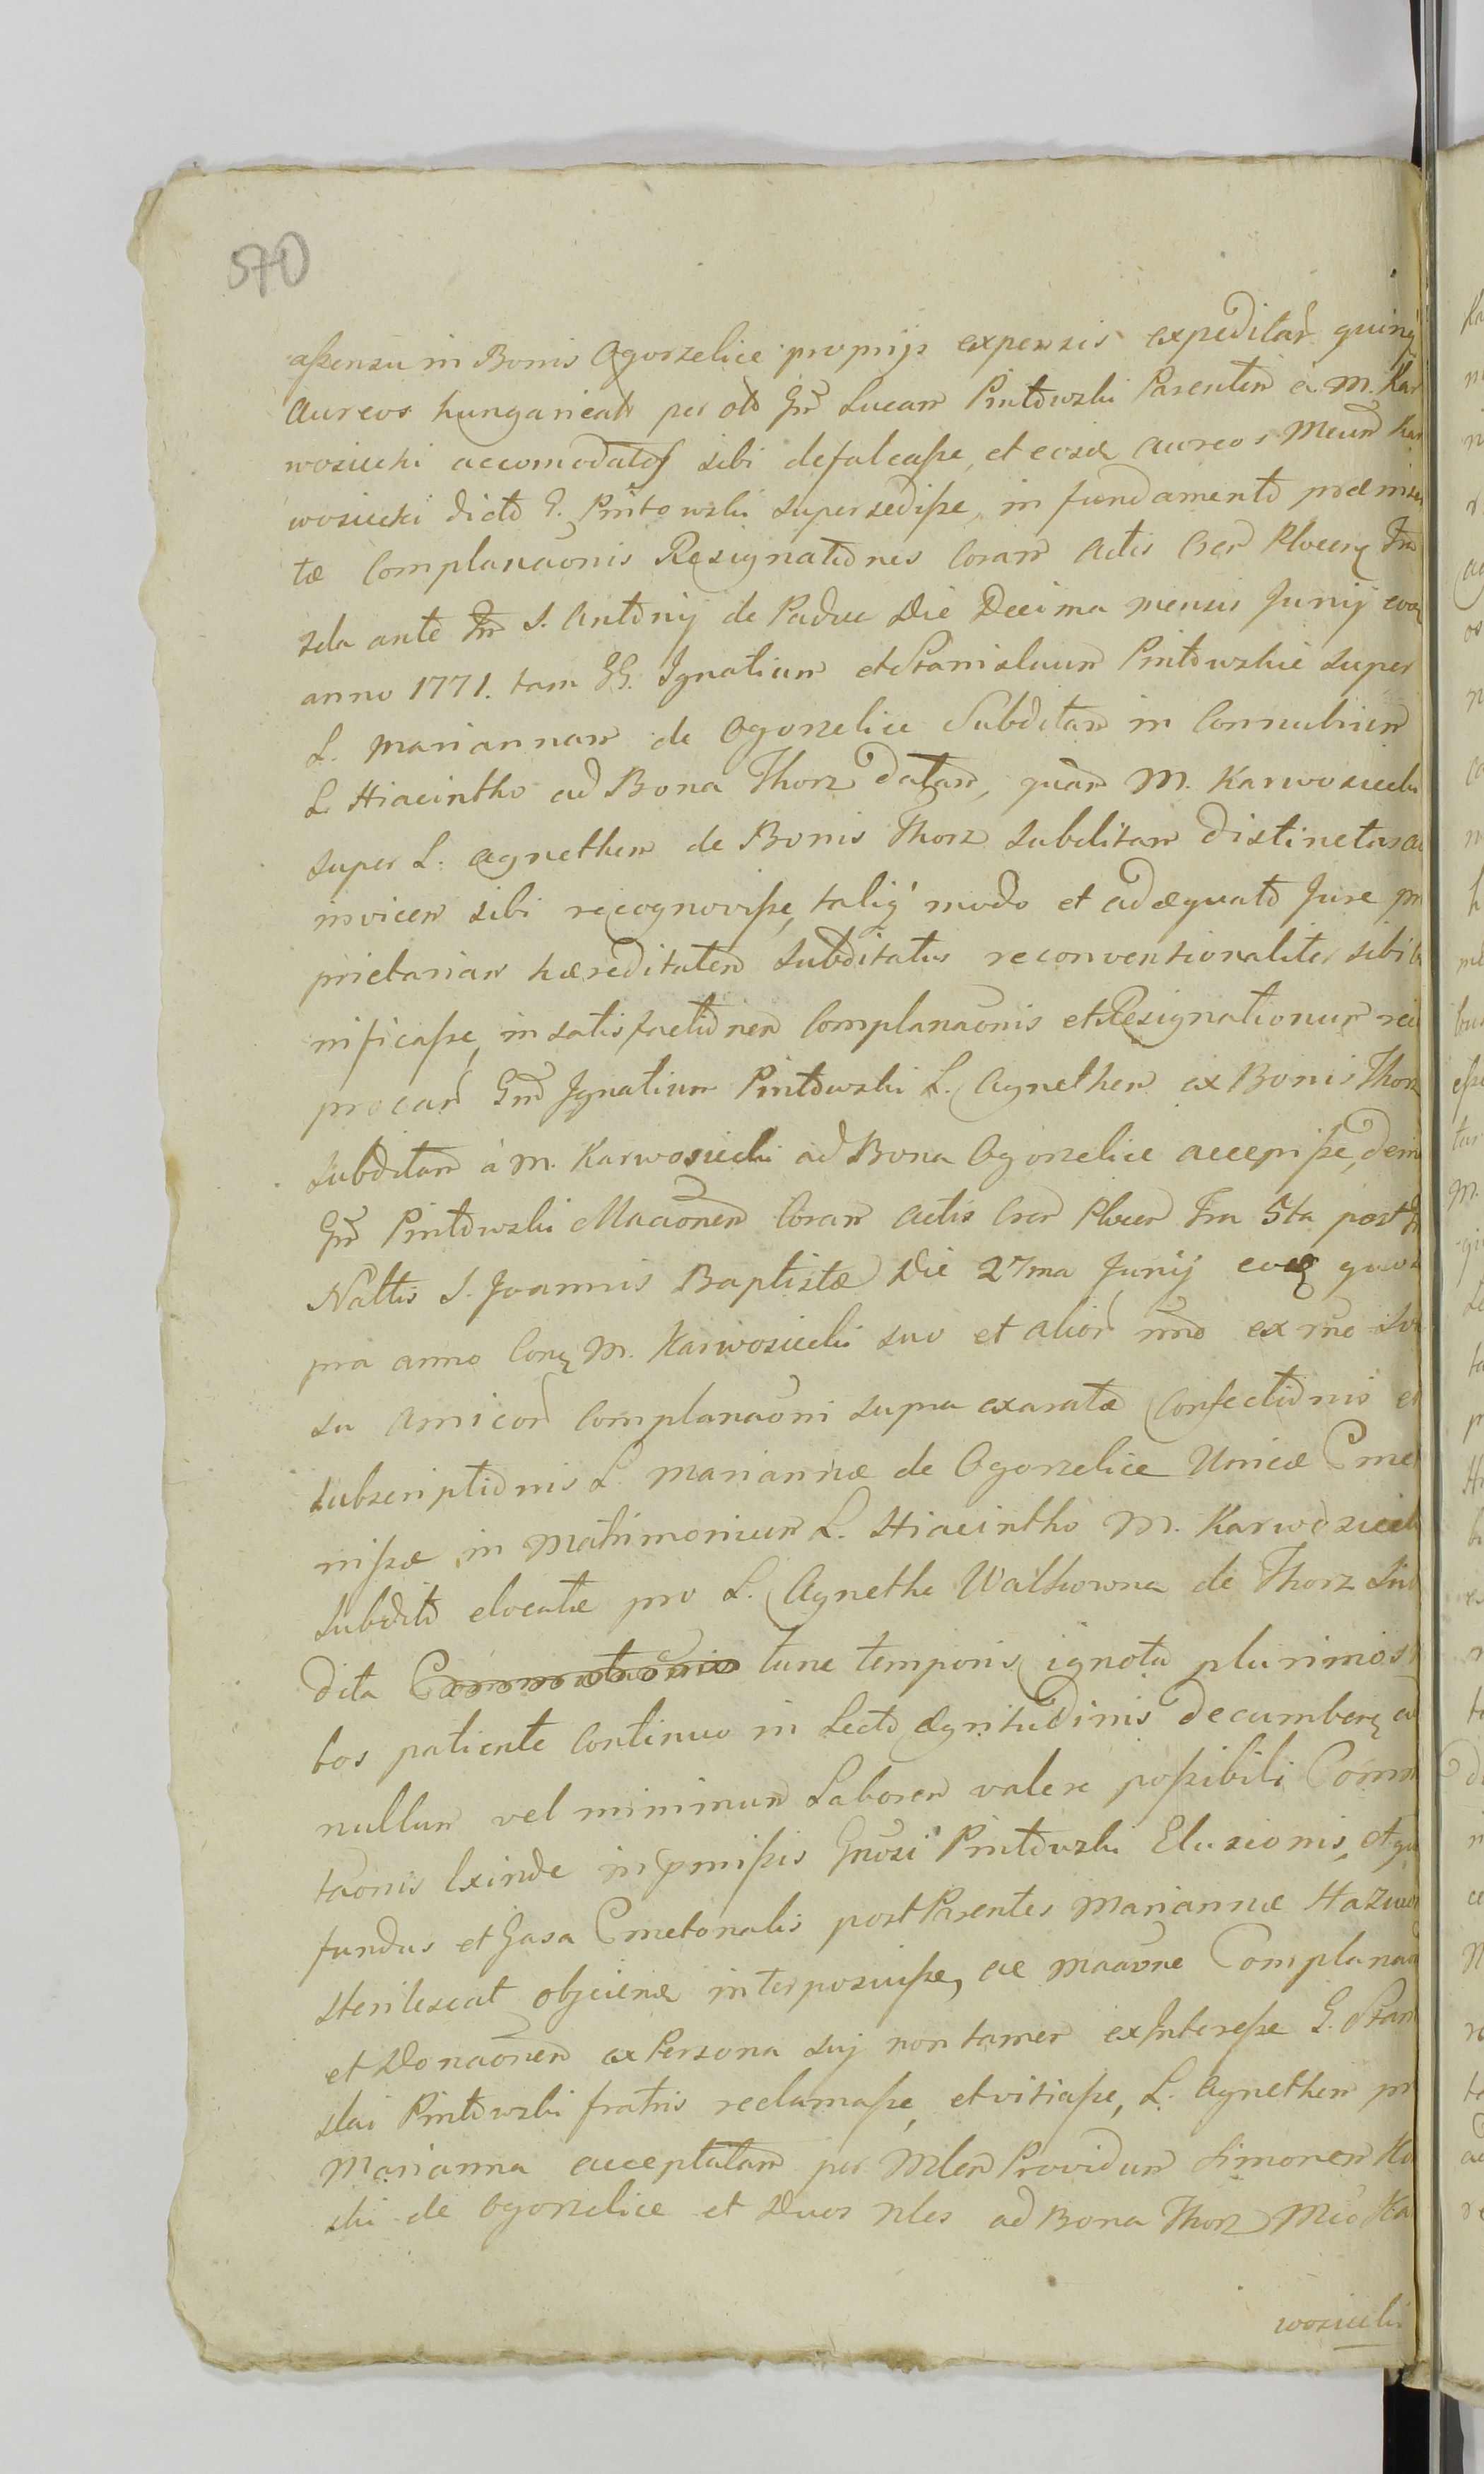 570
assensu in Bonis Ogorzelice proprijs expensis expeditar quinq
Aureos hungaricales per olo Gm Lucam Pintowski Parentem à M. Kar
wosiecki accomodatos sibi defalcasse, et eosd aureos Mcum Kar
wosiecki dicto G. Pintowski supersedisse, in fundamento præmin
tæ Complanaonis Resignationes Coram Actis Crer Plocen Fria
2da ante Fm S. Antonij de Padue Die Decima mensis Junij eoq
anno 1771. tam GG. Ignatium et Stanislaum Pintowskie super
L. Mariannam de Ogorzelice Subditam in Connubium
L. Hiacintho ad Bona Thorz datam, quàm M. Karwosiecki
super L. Agnethem de Bonis Thorz subditam distinctas a
invicem sibi recognovisse, taliq modo et adæquato Jure pro
prietariam hæreditatem subditatus reconventionaliter sibi
nificasse, in satisfactionem Complanaonis et Resignationum reci
procar Gm Ignatium Pintowski L. Agnethem ex Bonis Thorz
subditam à M. Karwosiecki ad Bona Ogorzelice accepisse, dein
Gm Pintowski Maaonem Coram Actis Crer Plocen Fria 5ta post F
Naltis S. Joannis Baptistæ Die 27ma Junij eoq quo su
pra anno Conq M. Karwosiecki suo et alior nmo ex rne
su Amicor Complanaoni supra exaratæ Confectionis et
subscriptionis L. Mariannæ de Ogorzelice Unicæ Cme
nissæ in Matrimonium L. Hiacintho M. Karwosiecki
subdito elocatæ pro L. Agnethe Walkowna de Thorz Sub
dita tunc temporis ignota plurimos
bos patiente Continuo in Lecto Ægritudinis decumbere, ad
nullum vel minimum Laborem valere possibili Comm
taonis Exinde in pmissis Gnosi Pintowski Elusionis, et qu
fundus et Gasa Cmetonalis post Parentes Mariannæ
sterilescat objiciendo interposuisse, ac Maaone Complanao
et Donaonem ex Persona sui non tamen ex Interesse G. Stani
slai Pintowski fratris reclamasse, et vitiasse, L. Agnethem pro
Marianna acceptatam per Mlem Providum Simonem Ko
ski de Ogorzelice et Duos Nles ad Bona Thorz Mco Kar
wosiecki